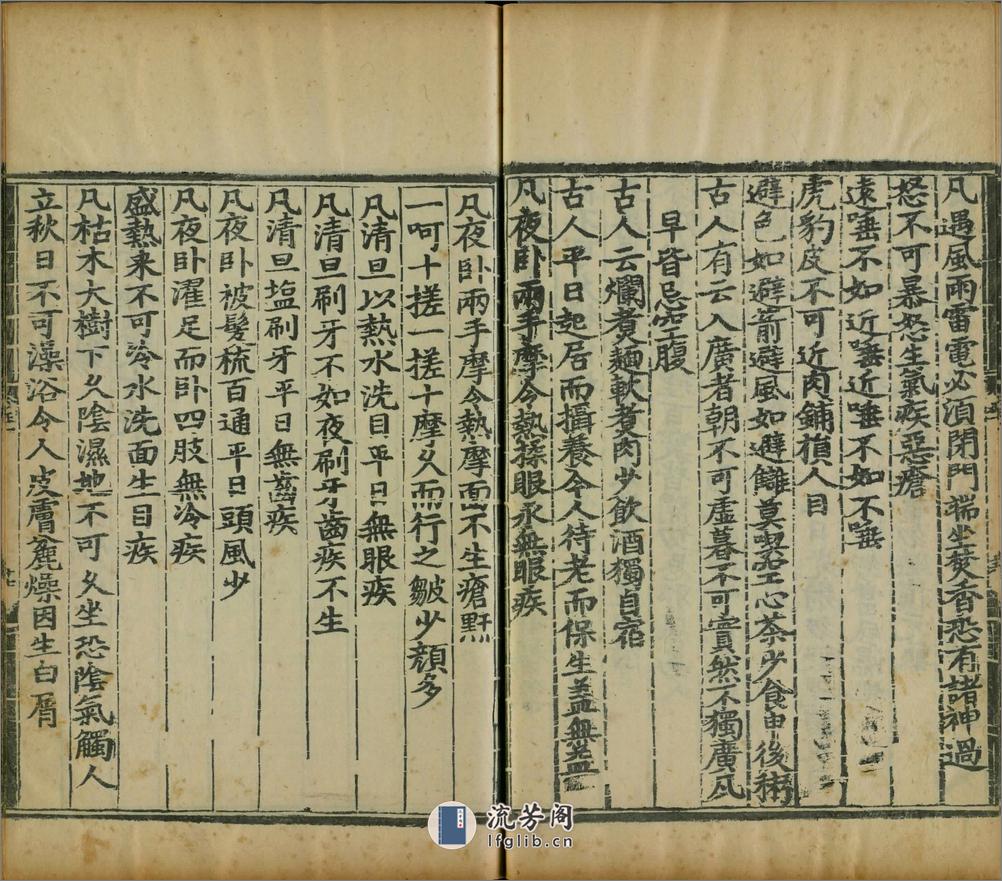 凡遇風雨雷電必須閉門端坐焚香恐有諸神過
怒不可暴怒生氣疾惡瘡
遠唾不如近唾近唾不如不唾
虎豹皮不可近肉鋪損人目
避色如避箭避風如避讎莫喫空心茶少食申後粥
古人有云入廣者朝不可虛暮不可實然不獨廣凡
早皆忌空腹
古人云爛煮麵軟煮肉少飲酒獨自宿
古人平日起居而攝養今人待老而保生盖無益
凡夜卧兩手摩令熱揉眼永無眼疾
凡夜卧兩手摩令熱摩面不生瘡䵟
一呵十搓一搓十摩久而行之皺少顏多
凡清旦以熱水洗目平日無眼疾
凡清旦刷牙不如夜刷牙齒疾不生
凡清旦塩刷牙平日無齒疾
凡夜卧被髮梳百通平日頭風少
凡夜卧濯足而卧四肢無冷疾
盛熱来不可冷水洗面生目疾
凡枯木大樹下久陰濕地不可久坐恐陰氣觸人
立秋日不可澡浴令人皮膚麄燥因生白屑
流芳阁
lfglib.cn